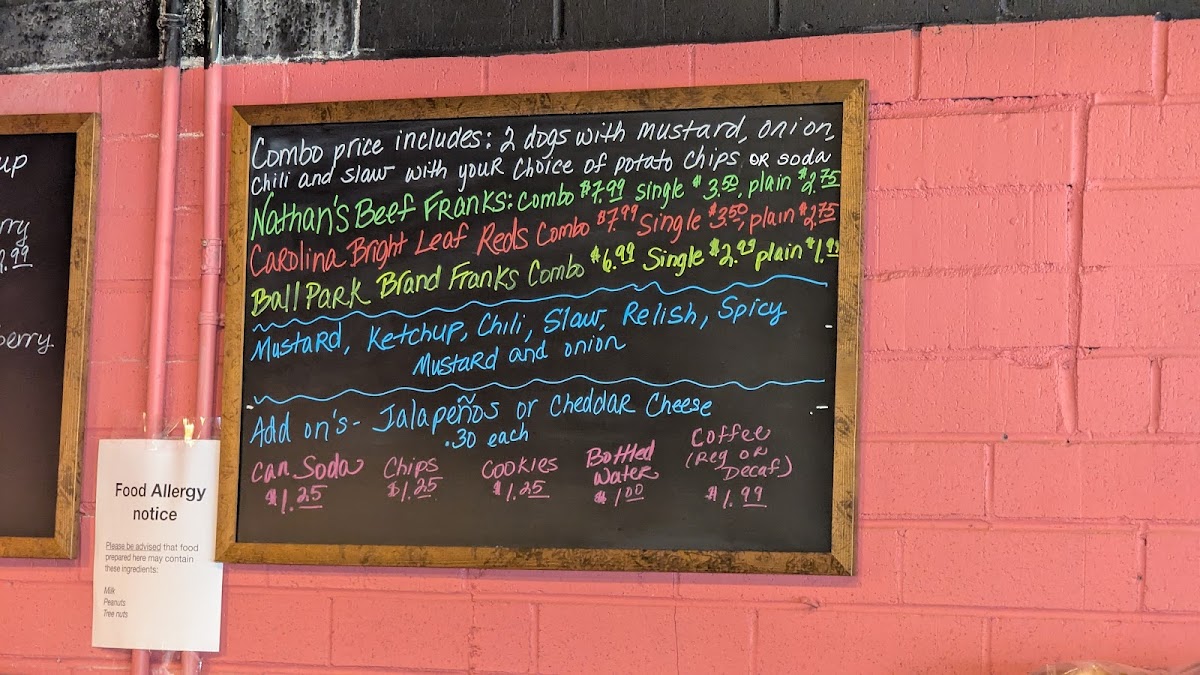 up
rry
.99
berry
Combo price includes: 2 dogs with mustard, onion,
chili and slaw with your choice of potato chips or soda
Nathan's Beef Franks: combo $7.99 single $3.50, plain $2.75
Carolina Bright Leaf Reds Combo $7.99 Single $3.50, plain $2.75
Ball Park Brand Franks Combo $6.99 Single $2.99 plain $1.99
Mustard, Ketchup, Chili, Slaw, Relish, Spicy
Mustard and onion
Add on's - Jalapeños or Cheddar Cheese
.30 each
Can Soda
$1.25
Chips
$1.25
Cookies
$1.25
Bottled
Water
$1.00
Coffee
(Reg or
Decaf)
$1.99
Food Allergy
notice
Please be advised that food
prepared here may contain
these ingredients:
Milk
Peanuts
Tree nuts